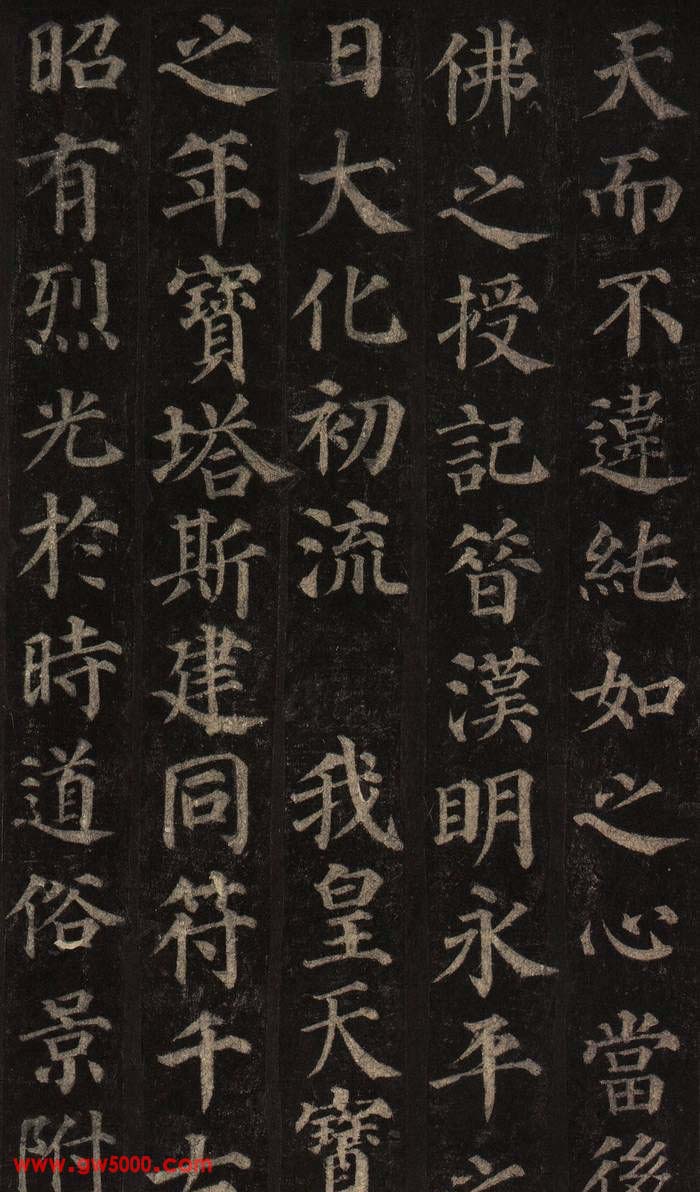 天而不違純如之心當後
佛之授記昔漢明永平之
日大化初流 我皇天寶
之年寶塔斯建同符千古
昭有烈光於時道俗景附
www.gw5000.com